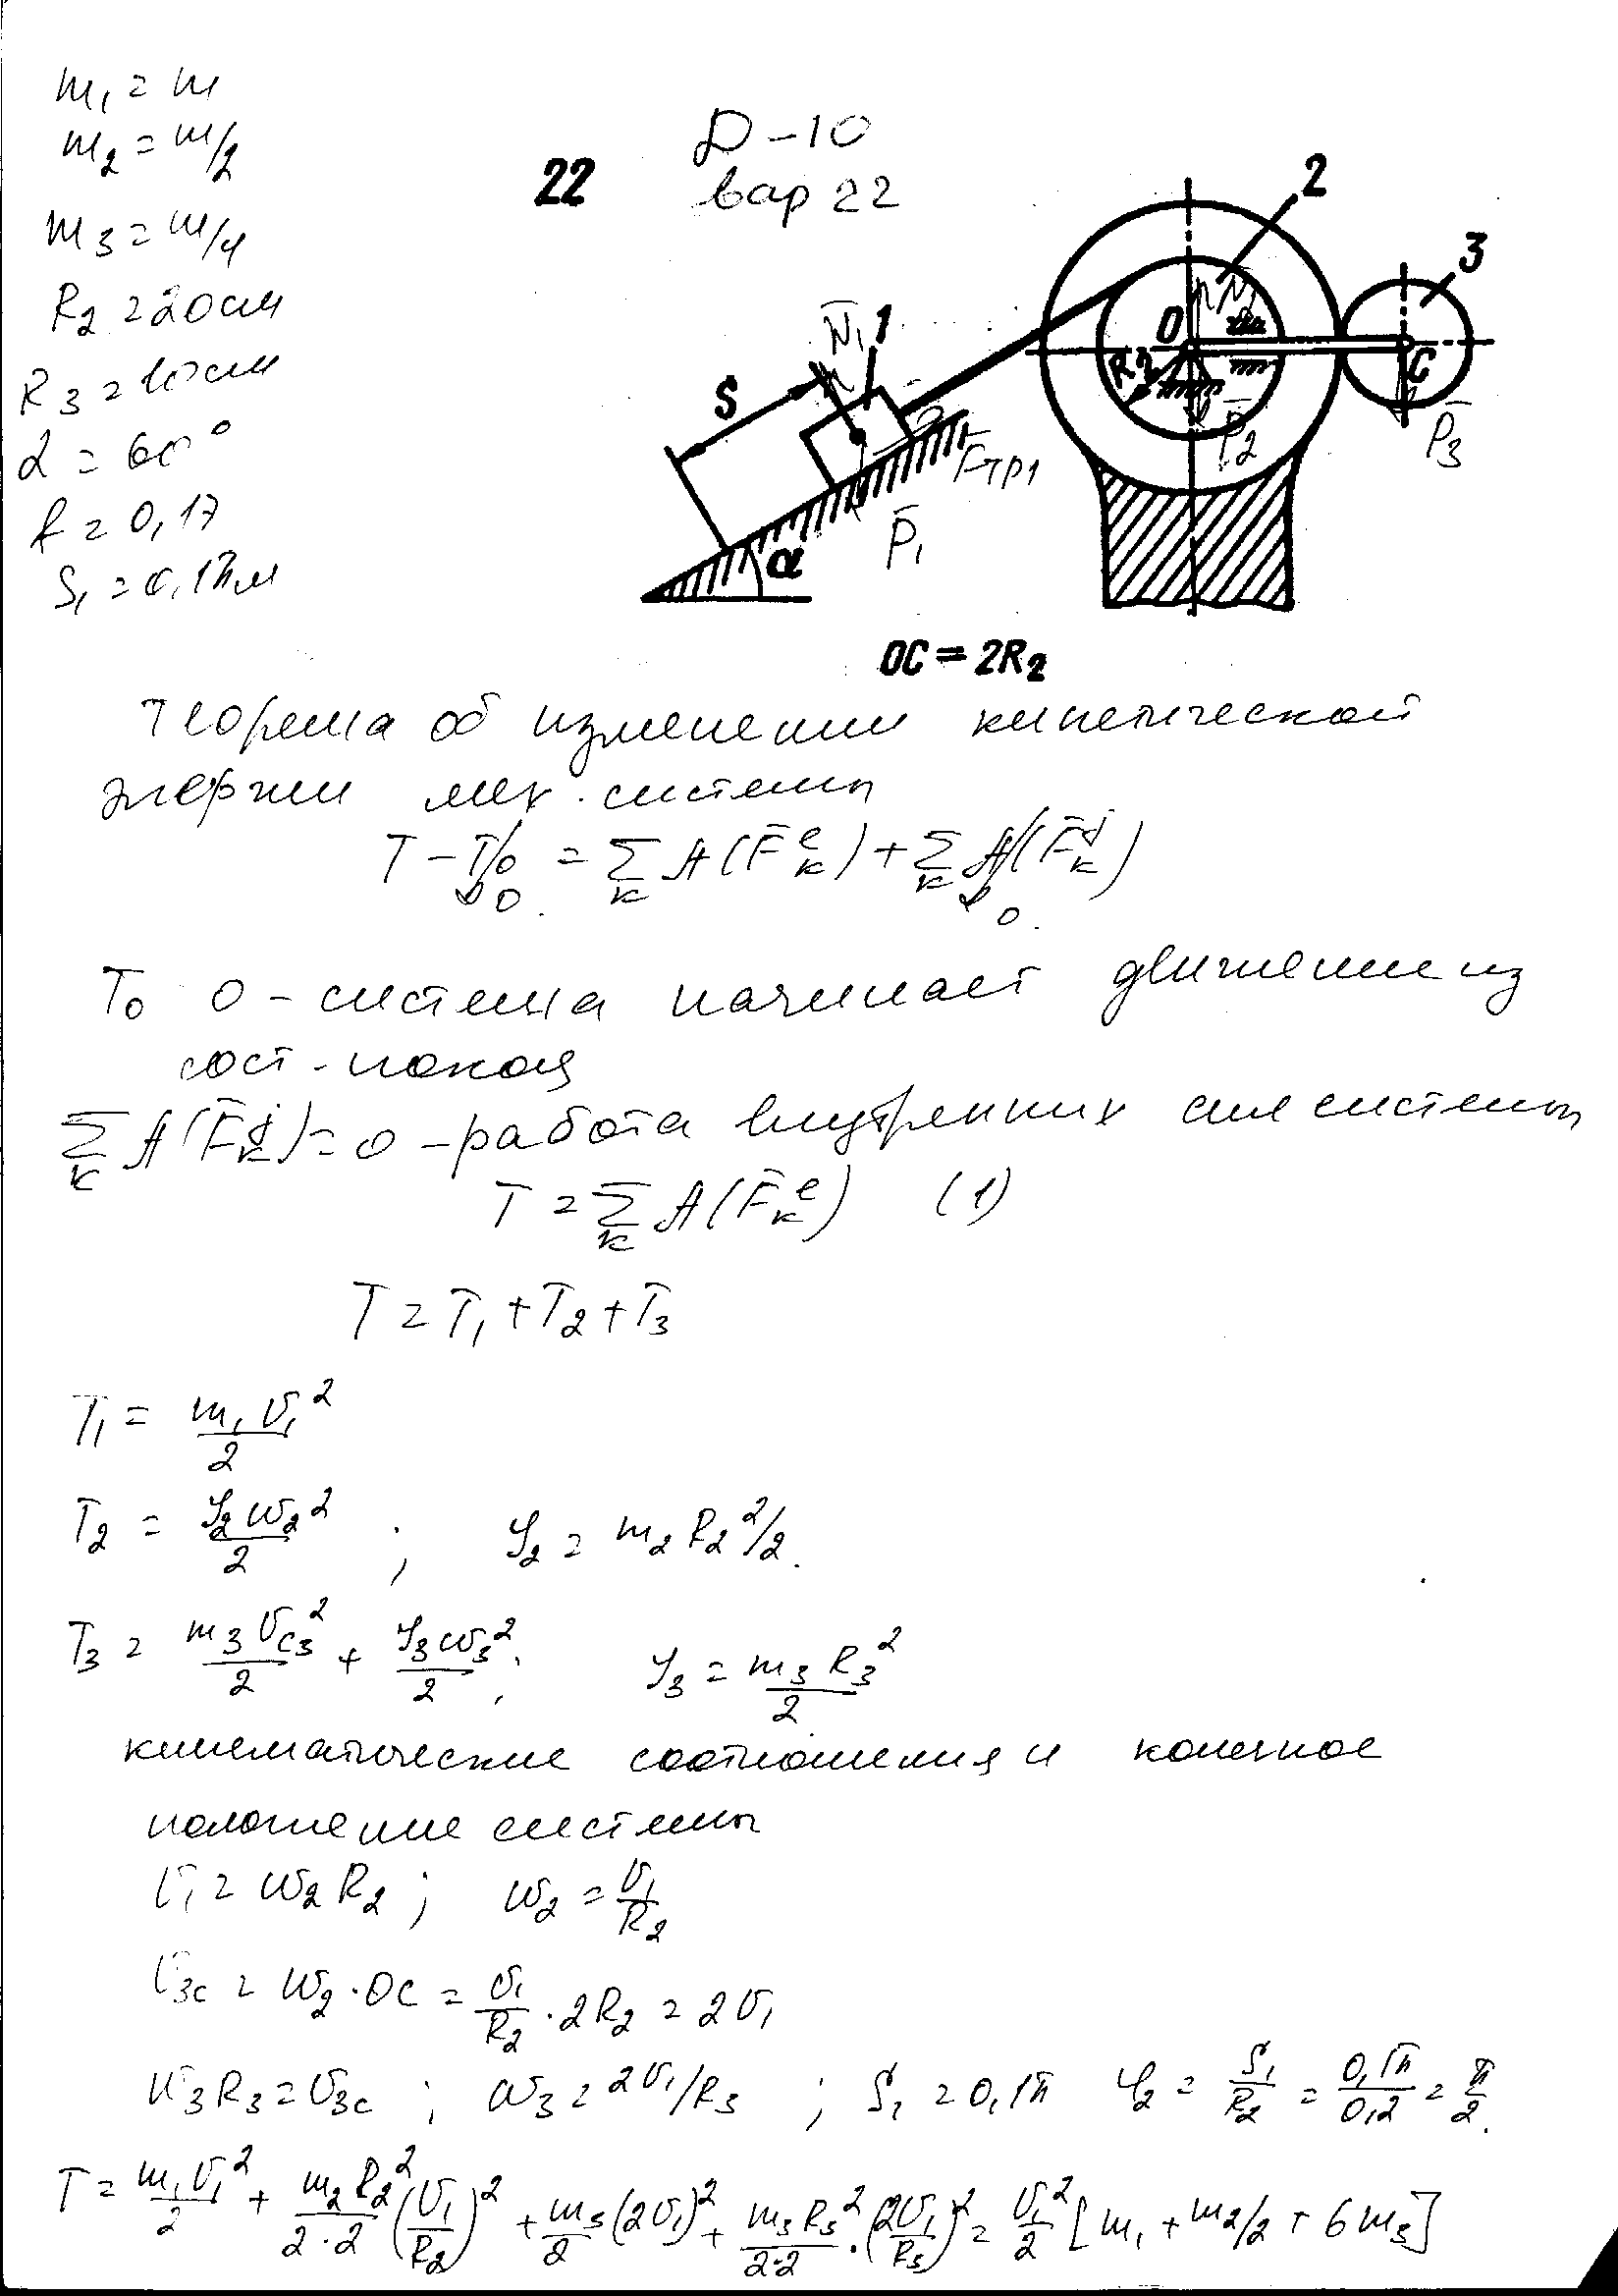 m₁ = m
m₂ = m/2
m₃ = m/4
R₂ = 20см
R₃ = 10см
α = 60°
f = 0,17
S₁ = 0,1πм
Д-10
вар 22
22
2
3
N̄₁
1
S
O
R₂
C
P̄₂
P̄₃
F̄тр1
P̄₁
α
OC = 2R₂
Теорема об изменении кинетической
энергии мех. системы
T - T₀ = Σₖ A(F̄ₖᵉ) + Σₖ A(F̄ₖʲ)
0 0
T₀ 0 - система начинает движение из
сост. покоя
Σₖ A(F̄ₖʲ) = 0 - работа внутренних сил системы
T = Σₖ A(F̄ₖᵉ) (1)
T = T₁ + T₂ + T₃
T₁ = m₁υ₁²/2
T₂ = J₂ω₂²/2 ; J₂ = m₂R₂²/2.
T₃ = m₃υc₃²/2 + J₃ω₃²/2; J₃ = m₃R₃²/2
кинематические соотношения и конечное
положение системы
υ₁ = ω₂R₂ ; ω₂ = υ₁/R₂
υ₃c = ω₂·OC = υ₁/R₂ · 2R₂ = 2υ₁
ω₃R₃ = υ₃c ; ω₃ = 2υ₁/R₃ ; S₁ = 0,1π φ₂ = S₁/R₂ = 0,1π/0,2 = π/2.
T = m₁υ₁²/2 + m₂R₂²/2·2 (υ₁/R₂)² + m₃/2 (2υ₁)² + m₃R₃²/2·2 · (2υ₁/R₃)² = υ₁²/2 [m₁ + m₂/2 + 6m₃]